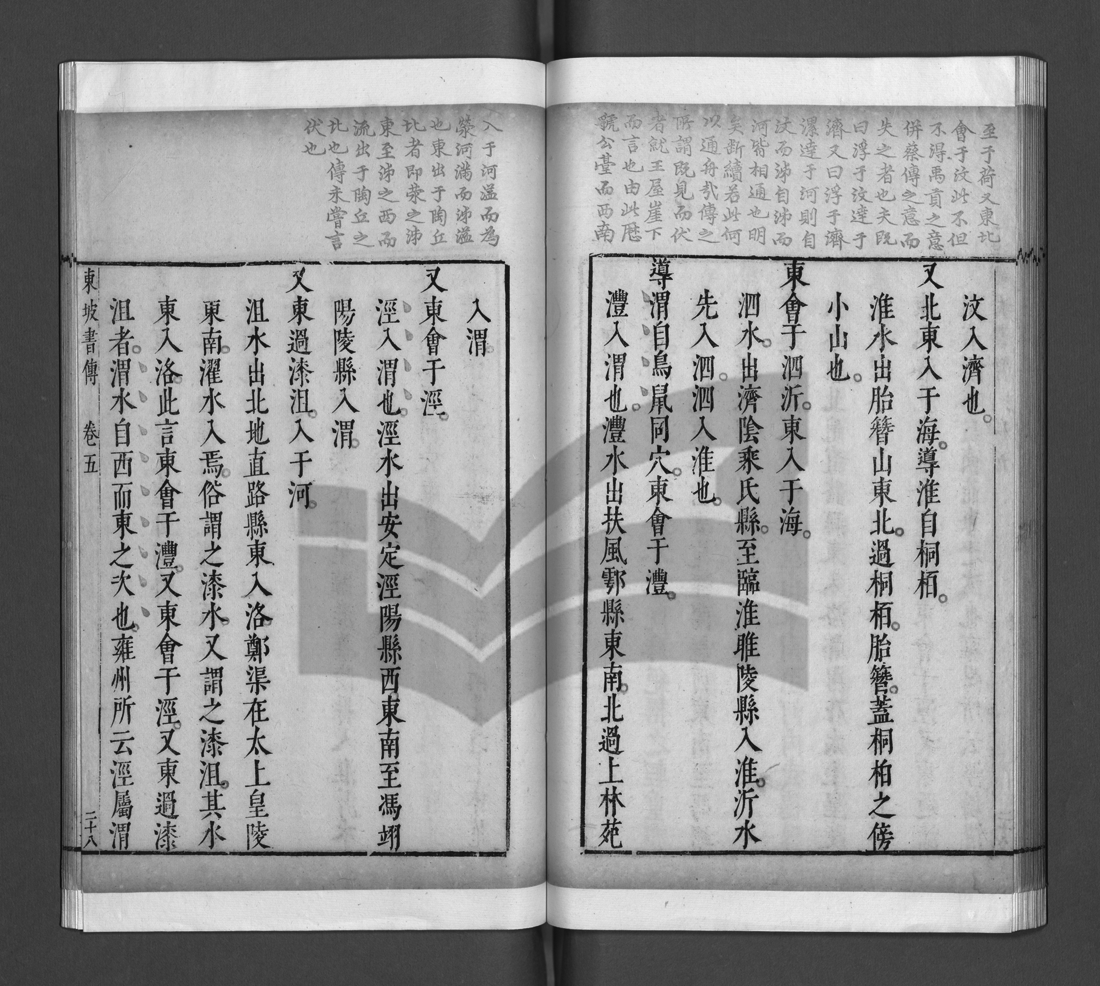 至于荷又東北
會于汶此不但
不得禹貢之意
併蔡傳之意而
失之者也夫既
曰浮于汶達于
濟又曰浮于濟
漯達于河則自
汶而沛自沛而
河皆相通也明
矣斷續若此何
以通舟哉傳之
所謂既見而伏
者就王屋崖下
而言也由此歷
號公臺而西南
汶入濟也。
又北東入于海。導淮自桐栢。
淮水出胎簪山東北。過桐栢。胎簪。蓋桐柏之傍
小山也。
東會于泗沂。東入于海。
泗水。出濟陰乘氏縣。至臨淮睢陵縣入淮。沂水
先入泗。泗入淮也。
導渭自鳥鼠同穴。東會于灃。
灃入渭也。灃水出扶風鄠縣東南。北過上林苑
入于河溢而為
滎河滿而沛溢
也東出于陶丘
北者即滎之沛
東至沛之西而
流出于陶丘之
北也傳未嘗言
伏也
入渭。
又東會于涇。
涇入渭也。涇水出安定涇陽縣西東南至馮翊
陽陵縣入渭。
又東過漆沮。入于河。
沮水出北地直路縣東入洛鄭渠在太上皇陵
東南。濯水入焉。俗謂之漆水。又謂之漆沮。其水
東入洛。此言東會于灃。又東會于涇。又東過漆
沮者。渭水自西而東之次也。雍州所云涇屬渭
東坡書傳 卷五 二十八